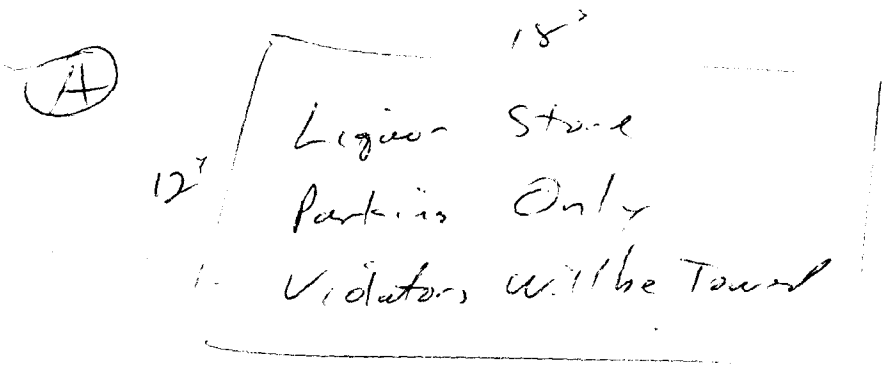 18"
A
12"
Liquor Store
Parking Only
Violators Will be Towed